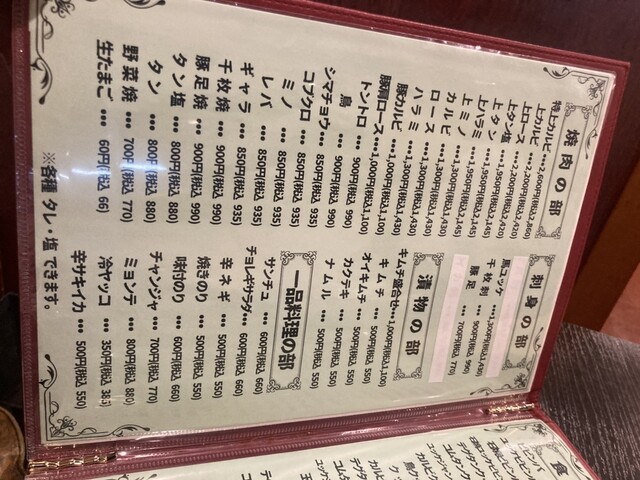 焼肉の部
特上カルビ•••2,600円(税込2,860)
上カルビ•••2,200円(税込2,420)
上ロース•••2,200円(税込2,420)
上タン塩•••1,950円(税込2,145)
上タン•••1,950円(税込2,145)
上ハラミ•••1,950円(税込2,145)
上ミノ•••1,300円(税込1,430)
カルビ•••1,300円(税込1,430)
ロース•••1,300円(税込1,430)
ハラミ•••1,300円(税込1,430)
豚カルビ•••1,000円(税込1,100)
豚肩ロース•••1,000円(税込1,100)
トントロ•••900円(税込990)
鳥•••900円(税込990)
シマチョウ•••850円(税込935)
コブクロ•••850円(税込935)
ミノ•••850円(税込935)
レバ•••850円(税込935)
ギャラ•••850円(税込935)
千枚焼•••900円(税込990)
豚足焼•••900円(税込990)
タン塩•••800円(税込880)
タン•••800円(税込880)
野菜焼•••700円(税込770)
生たまご•••60円(税込66)
※各種 タレ・塩 できます。
刺身の部
馬ユッケ•••1,300円(税込1,430)
千枚刺•••900円(税込990)
豚足•••700円(税込770)
漬物の部
キムチ盛合せ•••1,000円(税込1,100)
キムチ•••500円(税込550)
オイキムチ•••500円(税込550)
カクテキ•••500円(税込550)
ナムル•••500円(税込550)
一品料理の部
サンチュ•••600円(税込660)
チョレギサラダ•••600円(税込660)
辛ネギ•••500円(税込550)
焼きのり•••500円(税込550)
味付のり•••600円(税込550)
チャンジャ•••700円(税込770)
ミョンテ•••800円(税込880)
冷ヤッコ•••350円(税込385)
辛サキイカ•••500円(税込550)
食